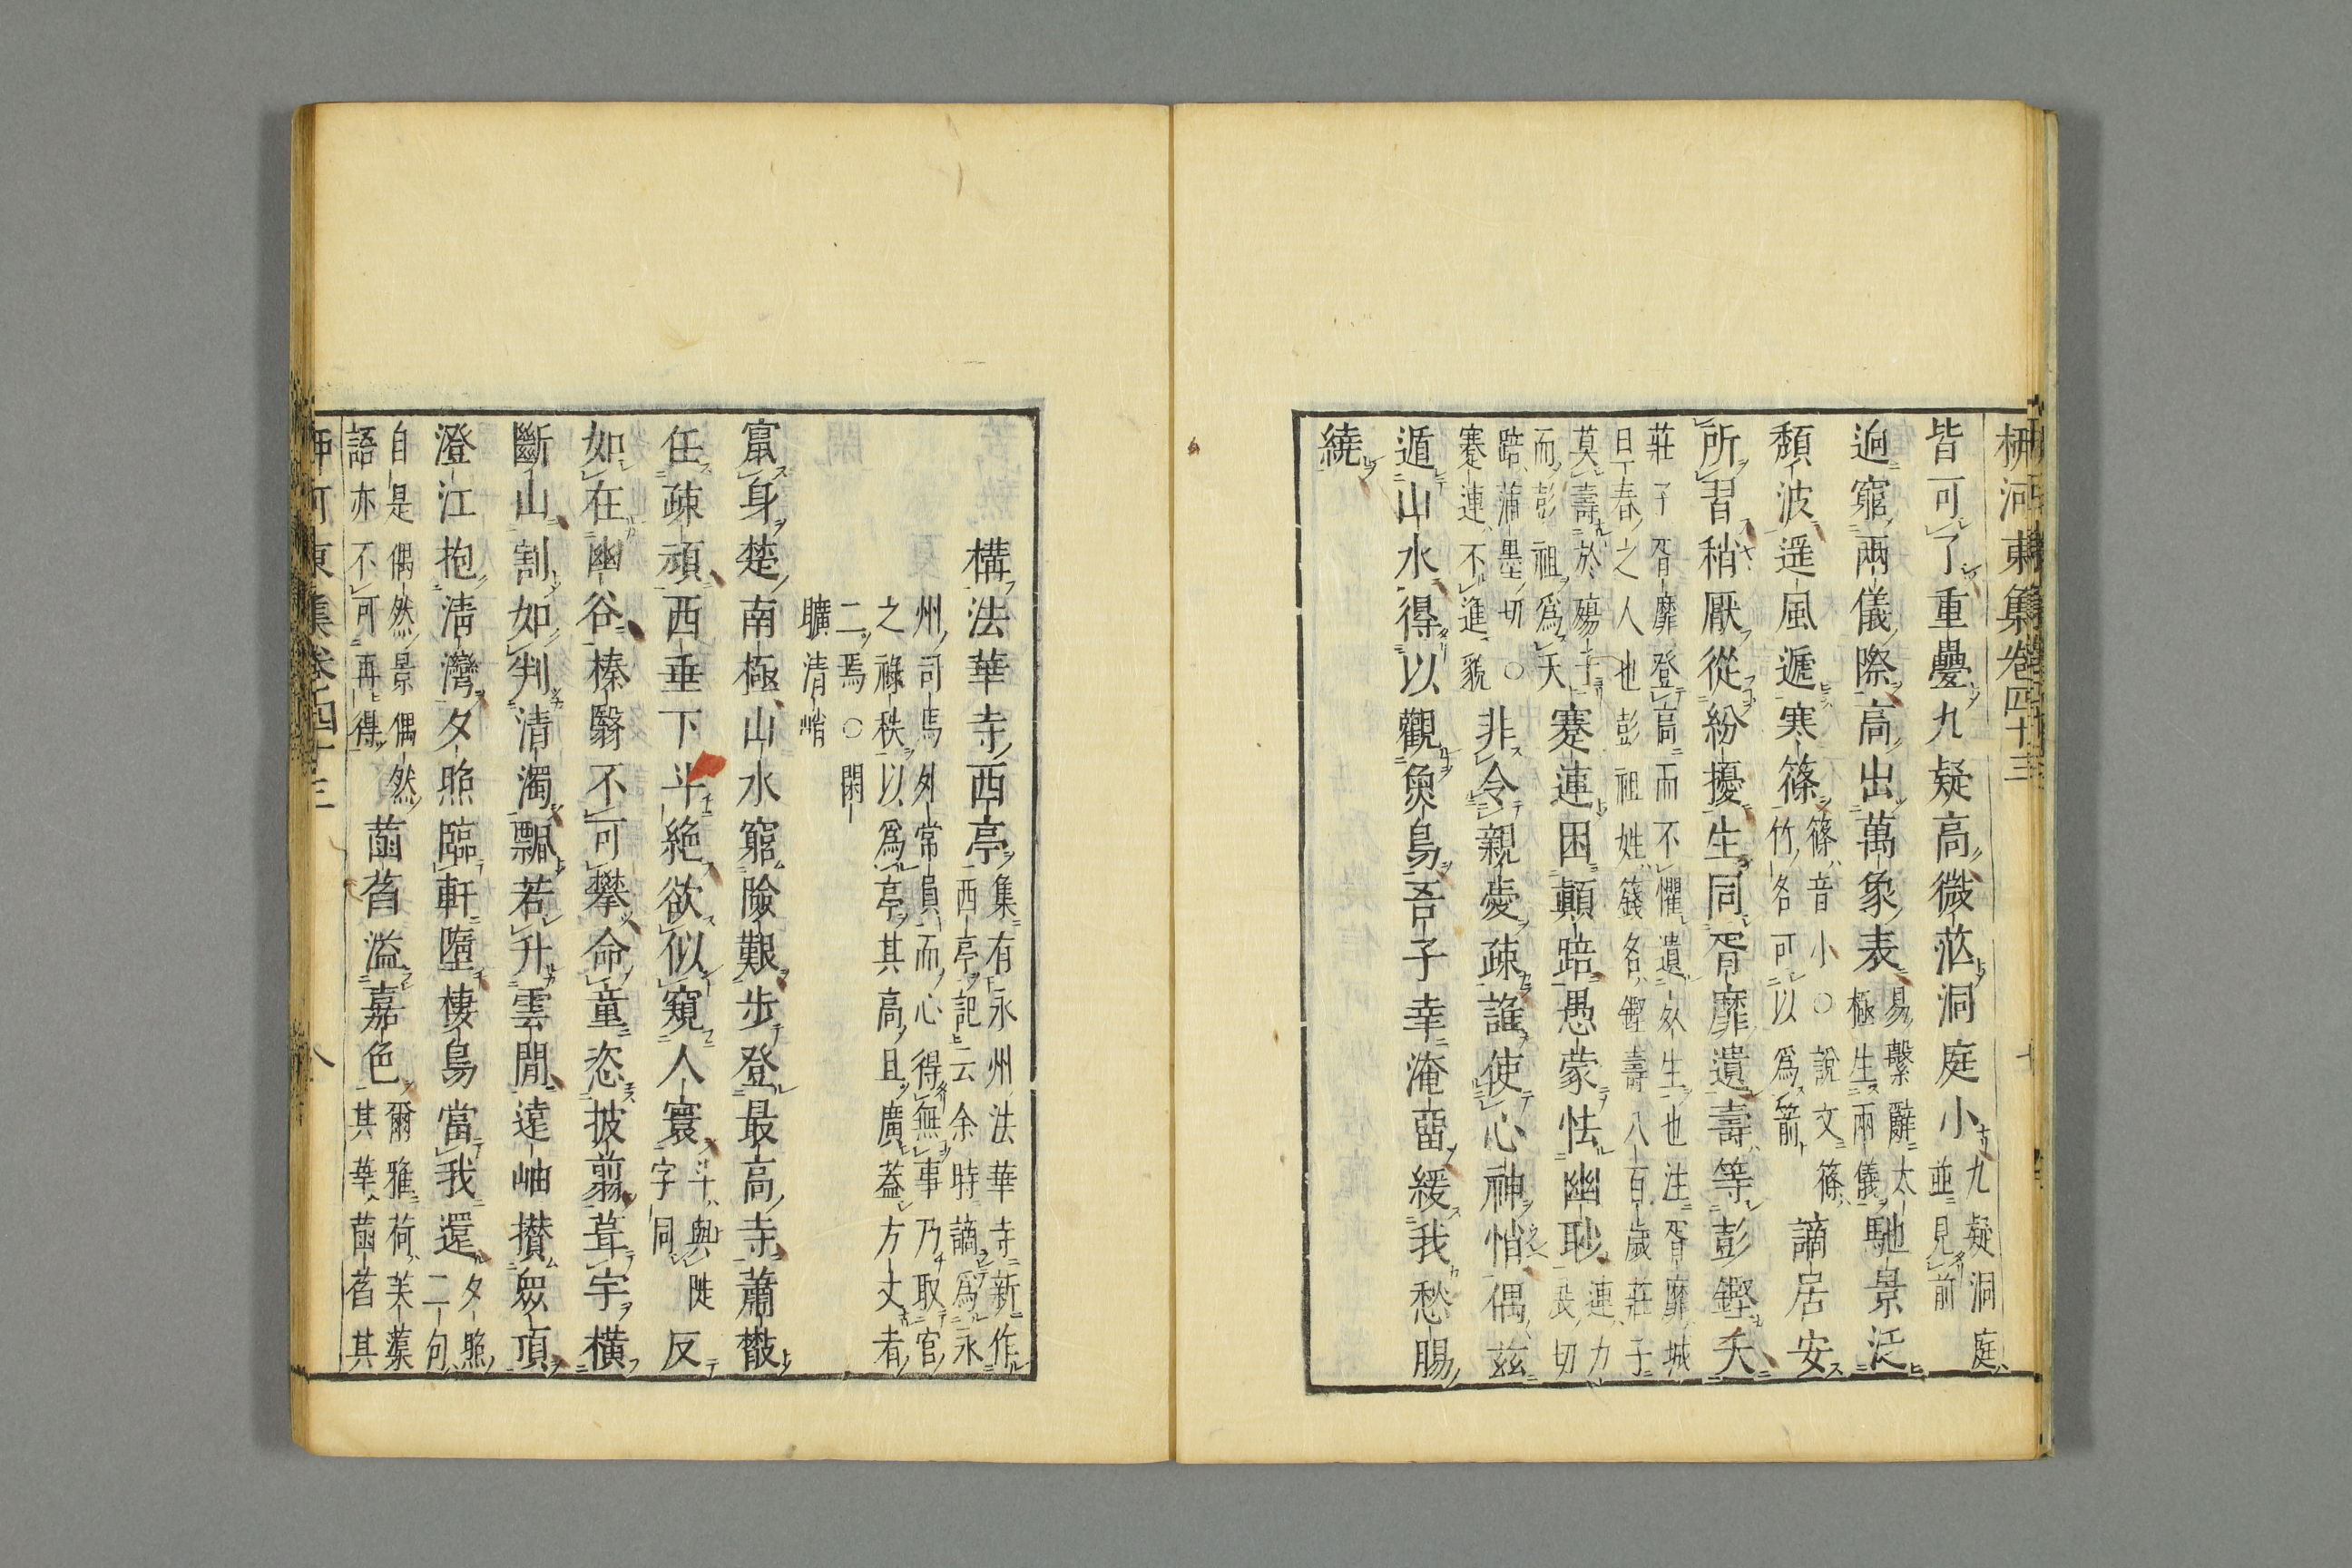 柳河東集卷四十三
皆可了重疊九疑高微茫洞庭小九疑洞庭並見前
逈窮兩儀際高出萬象表易繫辭太極生兩儀馳景泛
頹波遥風遞寒篠篠音小○說文篠竹名可以爲箭謫居安
所習稍厭從紛擾生同胥靡遺壽等彭鏗夭
莊子胥靡登高而不懼遺死生也注胥靡城
旦舂之人也彭祖姓籛名鏗壽八百歲莊子
莫壽於殤子
而彭祖爲夭
蹇連困顛踣愚蒙怯幽眇連力展切
踣蒲墨切○
蹇連不進貌
非令親愛疎誰使心神悄偶茲
遁山水得以觀魚鳥吾子幸淹留緩我愁腸
繞
構法華寺西亭集有永州法華寺新作西亭記云余時謫爲永
州司馬外常員而心得無事乃取官
之祿秩以爲亭其高且廣蓋方丈者
二焉○閑
曠清峭
竄身楚南極山水窮險艱步登最高寺蕭散
任疎頑西垂下斗絶欲似窺人寰斗與陡字同反
如在幽谷榛翳不可攀命童恣披翦葺宇橫
斷山割如判清濁飄若升雲間遠岫攢衆頂
澄江抱清灣夕照臨軒墮棲鳥當我還夕照二句
自是偶然景偶然
語亦不可再得
菡萏溢嘉色爾雅荷芙蕖其華菡萏其
柳河東集卷四十三
八